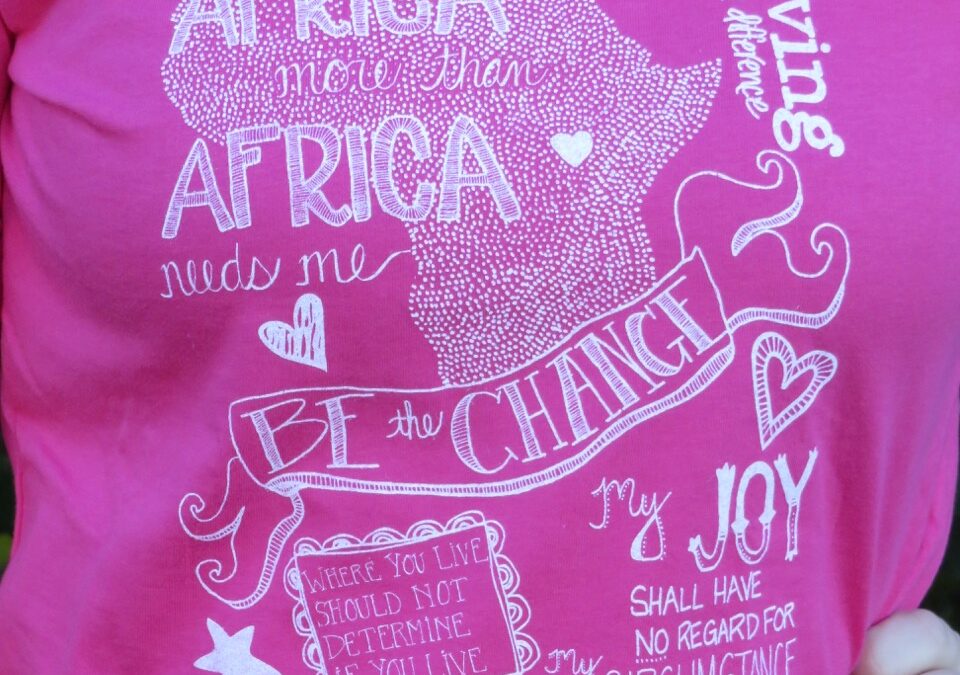 AFRICA
more than
AFRICA
needs me
difference
BE the CHANGE
My JOY
SHALL HAVE
NO REGARD FOR
CIRCUMSTANCE
WHERE YOU LIVE
SHOULD NOT
DETERMINE
IF YOU LIVE
My